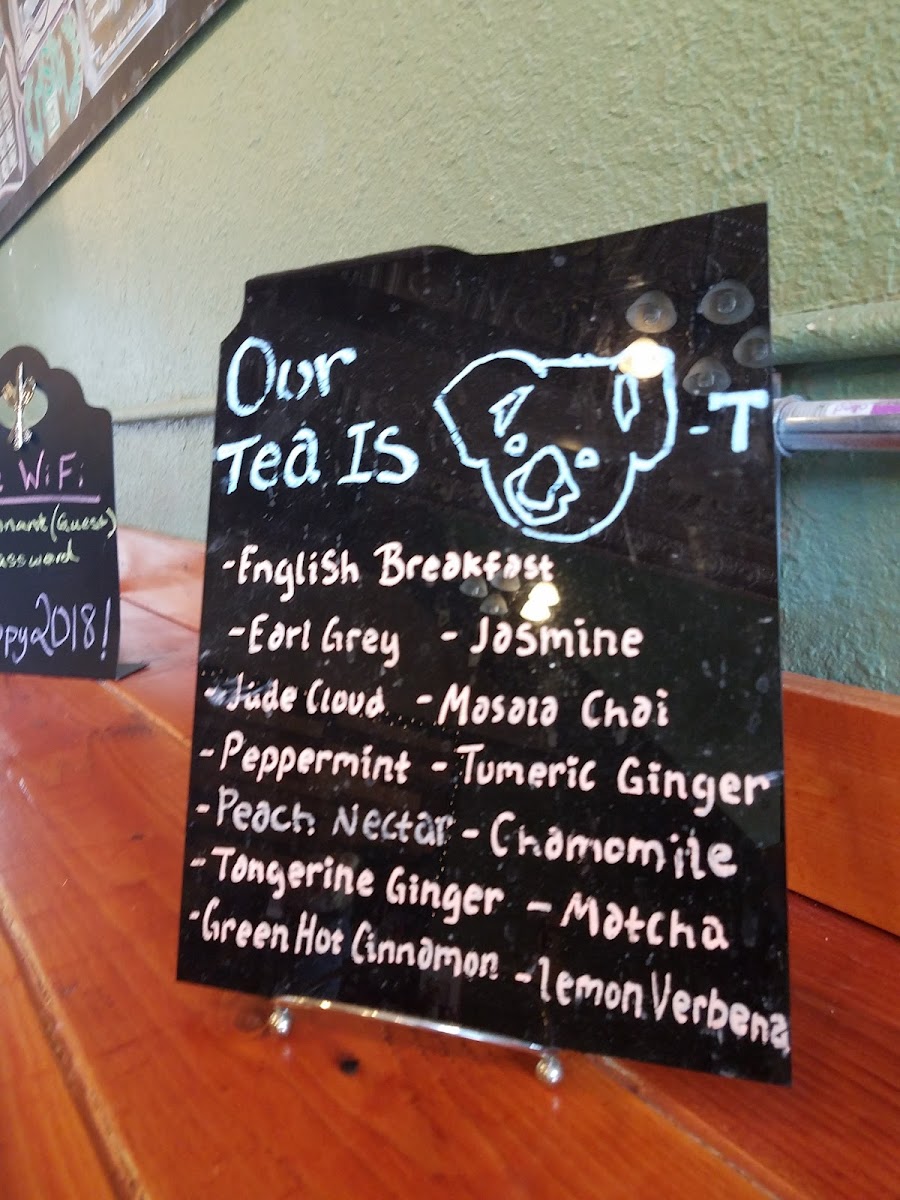 Our
Tea Is -T
-English Breakfast
-Earl Grey - Jasmine
-Jade Cloud - Masala Chai
-Peppermint - Tumeric Ginger
-Peach Nectar - Chamomile
-Tangerine Ginger - Matcha
-Green Hot Cinnamon - Lemon Verbena
WiFi
(Guest)
2018!